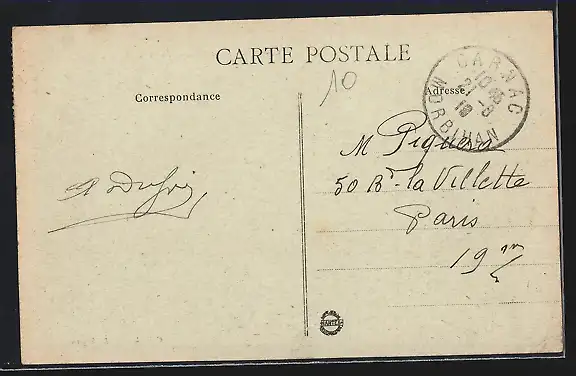 CARTE POSTALE
10
Correspondance
Adresse
CARNAC
MORBIHAN
M Piquera
50 Bd la Villette
Paris
19